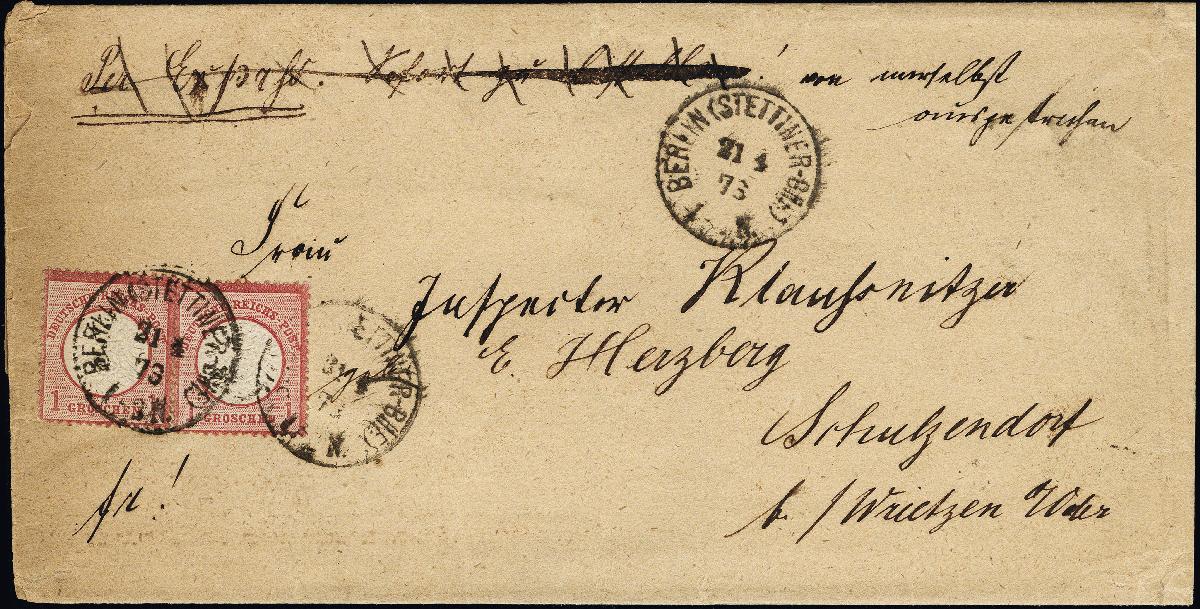 Per Expreß. Sofort zu ! von merselbst
ausgestrichen
BERLIN (STETTINER-BHF)
21 4
73
N.
Frau
Inspector Klaussnitzer
E. Herzberg
Schulzendorf
b./Wrietzen a/Oder
DEUTSCHE REICHS-POST
1 GROSCHEN 1
DEUTSCHE REICHS-POST
1 GROSCHEN 1
BERLIN (STETTINER-BHF)
21 4
73
N.
STETTINER-BHF)
21 4
73
N.
fr!